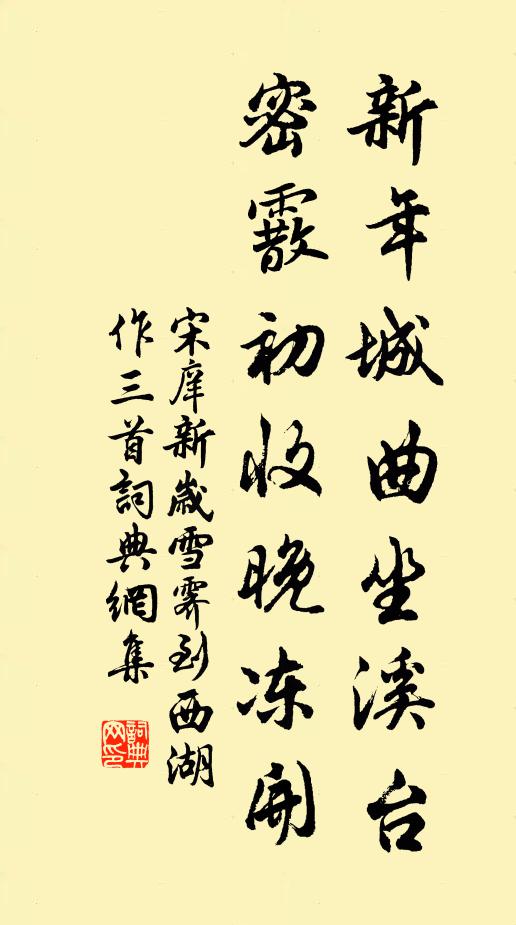 新年城曲坐溪台
密霰初收晚冻开
宋庠新歲雪霽到西湖
作三首詞典網集
詞典網印